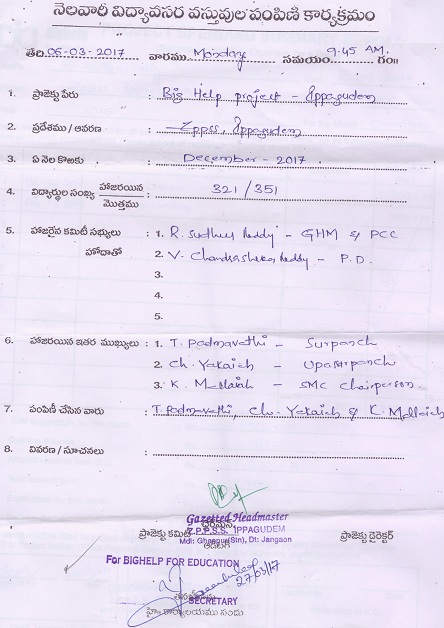 నెలవారీ విద్యావసర వస్తువుల పంపిణి కార్యక్రమం
తేది: 06-03-2017 వారము Monday సమయం: 9:45 AM. గం॥
1. ప్రాజెక్టు పేరు : Big Help project - Ippagudem
2. ప్రదేశము / ఆవరణ : ZPPSS, Ippagudem
3. ఏ నెల కొఱకు : December - 2017
4. విద్యార్థుల సంఖ్య హాజరయిన / మొత్తము : 321 / 351
5. హాజరైన కమిటీ సభ్యులు : 1. R. Sudheer Reddy - GHM & PCC
హోదాతో 2. V. Chandrasheka Reddy - P.D.
3.
4.
5.
6. హాజరయిన ఇతర ముఖ్యులు : 1. T. Padmavathi - Surpanch
2. Ch. Yakaiah - Upasarpanch
3. K. Mallaiah - SMC Chairperson.
7. పంపిణీ చేసిన వారు : T. Padmavathi, Ch. Yakaiah & K. Mallaiah
8. వివరణ / సూచనలు :
Gazetted Headmaster
ప్రాజెక్టు కమిటీ Z.P.P.S.S. IPPAGUDEM ప్రాజెక్టు డైరెక్టర్
Mdl: Ghanpur(Stn), Dt: Jangaon
For BIGHELP FOR EDUCATION
27/03/17
SECRETARY